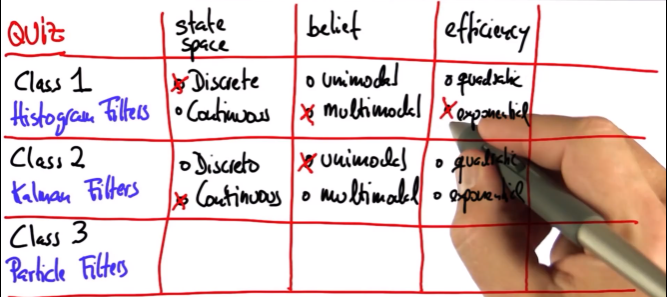 QUIZ
state space
belief
efficiency
Class 1
Histogram Filters
Discrete
Continuous
unimodal
multimodal
quadratic
exponential
Class 2
Kalman Filters
Discrete
Continuous
unimodal
multimodal
quadratic
exponential
Class 3
Particle Filters